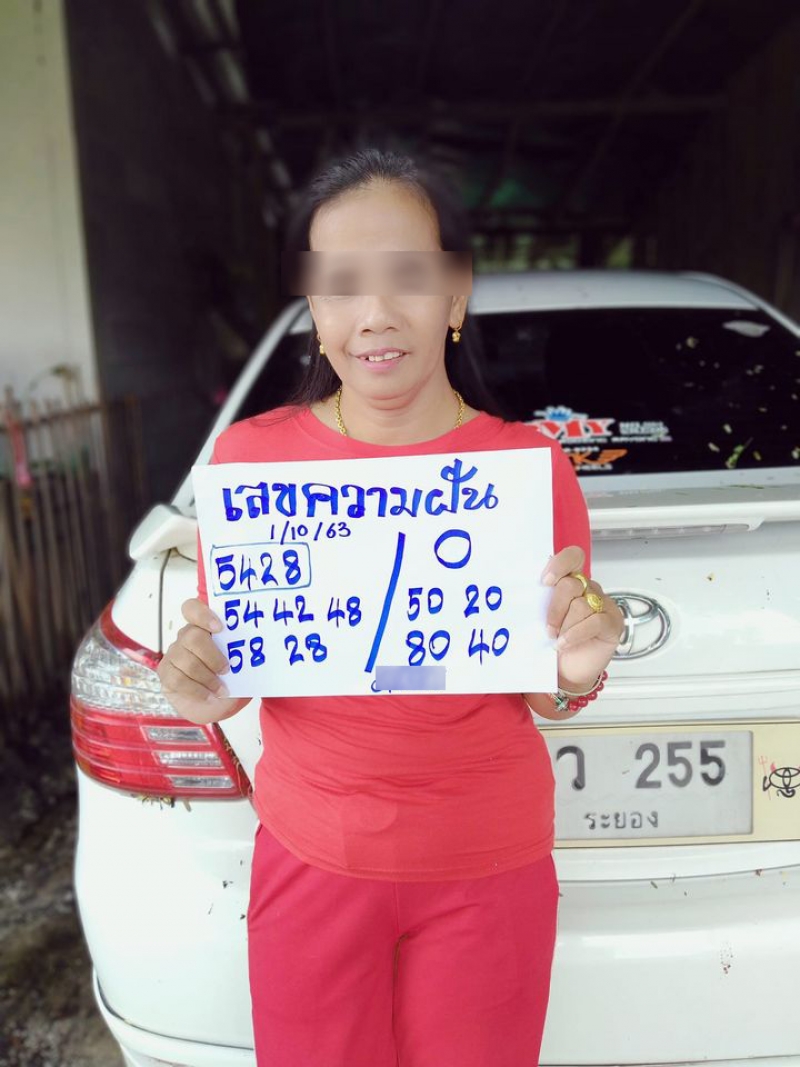 เลขความฝัน
1/10/63
5428
54 42 48
58 28
0
50 20
80 40
MY
ว 255
ระยอง